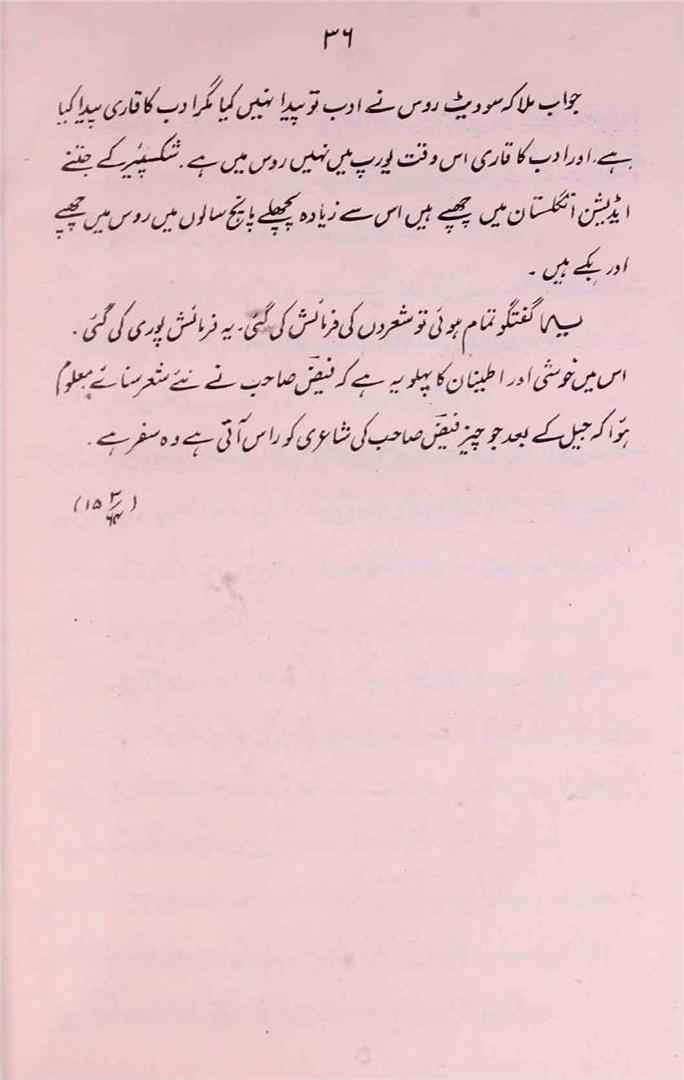 ۳۶
جواب ملا کہ سوویٹ روس نے ادب تو پیدا نہیں کیا مگر ادب کا قاری پیدا کیا
ہے۔ اور ادب کا قاری اس وقت یورپ میں نہیں روس میں ہے۔ شکسپئیر کے جتنے
ایڈیشن انگلستان میں چھپے ہیں اس سے زیادہ پچھلے پانچ سالوں میں روس میں چھپے
اور بکے ہیں ۔
یہ گفتگو تمام ہوئی تو شعروں کی فرمائش کی گئی۔ یہ فرمائش پوری کی گئی ۔
اس میں خوشی اور اطینان کا پہلو یہ ہے کہ فیضؔ صاحب نے نئے شعر سنائے معلوم
ہؤا کہ جیل کے بعد جو چیز فیضؔ صاحب کی شاعری کو راس آتی ہے وہ سفر ہے ۔